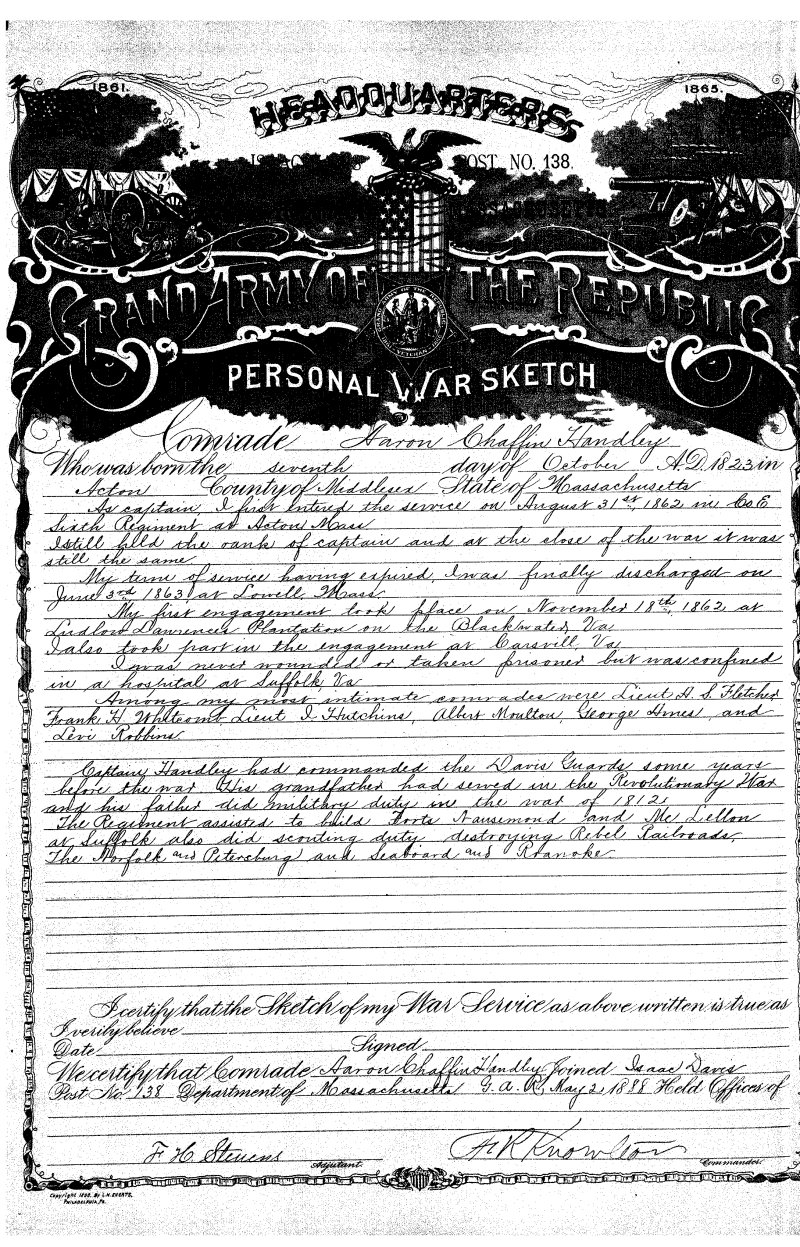 1861.
1865.
HEADQUARTERS
POST. NO. 138.
MASSACHUSETTS
GRAND ARMY OF THE REPUBLIC
VETERAN
PERSONAL WAR SKETCH
Comrade Aaron Chaffin Handley
Who was born the seventh day of October A.D. 1823 in
Acton County of Middlesex State of Massachusetts
As captain, I first entired the service on August 31st, 1862 in Co E
Sixth Regiment at Acton Mass
I still held the rank of captain and at the close of the war it was
still the same.
My term of service having expired, I was finally discharged on
June 3rd 1863 at Lowell, Mass.
My first engagement took place on November 18th, 1862 at
Ludlow Lawrences Plantation on the Blackwater, Va
I also took part in the engagement at Carsvill, Va
I was never wounded or taken prisoner but was confined
in a hospital at Suffolk Va
Among my most intimate comrades were Lieut A. S. Fletcher
Frank H. Whitcomb, Lieut I Hutchins, Albert Moulton, George Imes, and
Levi Robbins.
Captain Handley had commanded the Davis Guards some years
before the war. His grandfather had served in the Revolutionary War
and his father did military duty in the war of 1812.
The Regiment assisted to build Forts Nansemond and Mc Lellon
at Suffolk also did scouting duty destroying Rebel Railroads,
The Norfolk and Petersburg and Seaboard and Roanoke.
I certify that the Sketch of my War Service as above written is true as
I verily believe
Date Signed
We certify that Comrade Aaron Chaffin Handley Joined Isaac Davis
Post No. 138 Department of Massachusetts G. A. R. May 2 1888 Held Offices of
F H Stevens
Adjutant.
A R Knowlton
Commander.
Copyright 1890. By L.H. EVERTS,
PHILADELPHIA, PA.